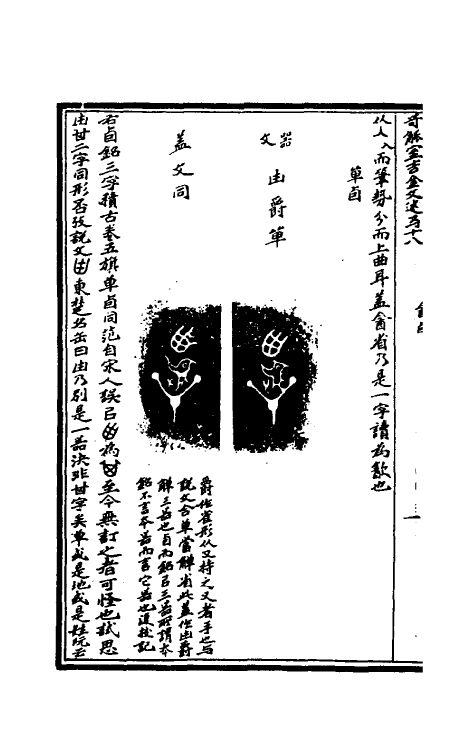 奇觚室吉金文述卷十八
从人入而筆勢分而上曲耳蓋酓省乃是一字讀為歙也
單卣
器文
由爵單
蓋文同
爵作雀形从又持之又者手也与
說文合單當觶省此蓋作由爵
觶三器也卣而銘曰三器所謂本
銘不言本器而言它器也復校記
右卣銘三字積古卷五旗單卣同范自宋人誤目為至今無訂之者可怪也試思
由甘二字同形否攷說文東楚名缶曰由乃別是一器決非甘字矣單或是地或是姓阮云